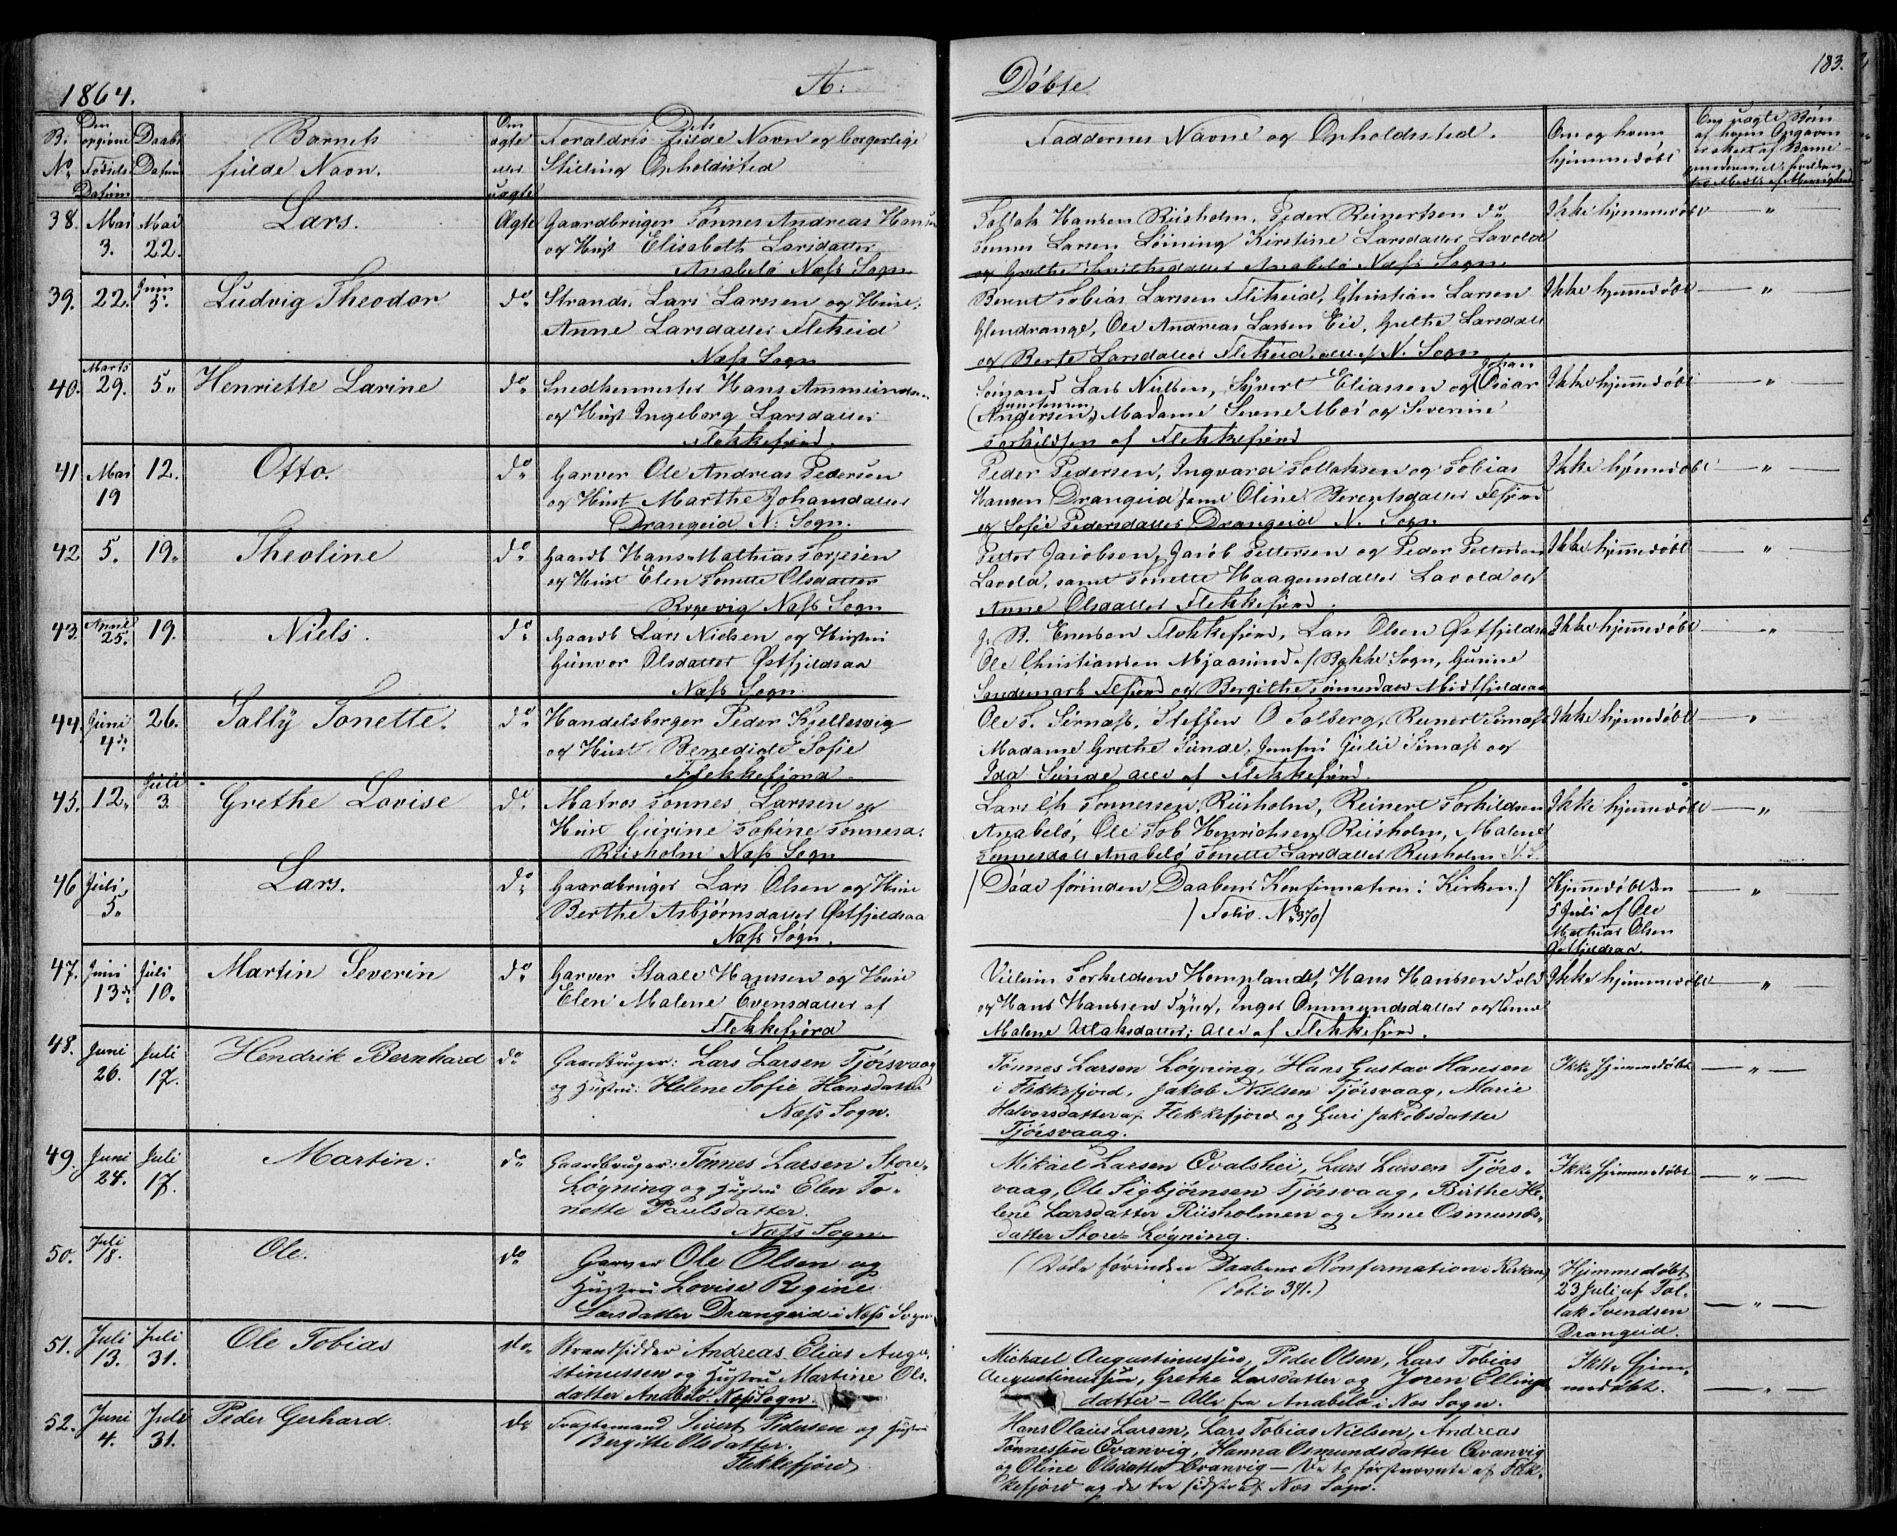 183.
1864.
A: Döbte
B. No
Den opgivne Fødsels Datum
Daabs Datum
Barnets fulde Navn.
Om ægte eller uægte
Forældres fulde Navn og borgerlige Stilling Opholdssted
Faddernes Navne og Opholdssted.
Om og hvem hjemmedöbt
38. Mai 3. Mai 22. Lars. Ægte
Gaardbruger Tönnes Andreas Hansen
og Hust Elisabeth Larsdatter
Anabelö Næss Sogn
Tollak Hansen Riisholm, Peder Reinertsen do
Tönnes Larsen Löining Kirstine Larsdatter Lavold
og Grethe Anabelö Næss Sogn
Ikke hjemmedöbt — " —
39. 22. Juni 5. Ludvig Theodor do
Strands. Lars Larssen og Hust.
Anne Larsdatter Flikeid
Næss Sogn
Bernt Tobias Larssen Flikeid, Christian Larsen
Glendrange, Ole Andreas Larsen Eie, Grethe Larsdatt
og Berte Larsdatter Flikeid, alle af N. Sogn
Ikke hjemmedöbt — " —
40. Marts 29. 5. Henriette Larine do
Snedkermester Hans Ammundsen
og Hust Ingeborg Larsdatter
Flekkefjord.
Lars Nielsen, Syvert Eliassen og Johan Oscar
Andersen, Madame Moi og Severine
Torkildsen af Flekkefjord
Ikke hjemmedöbt — " —
41 Mai 19 12. Otto. do
Garver Ole Andreas Pedersen
og Hust Marthe Johansdatter
Drangeid N: Sogn.
Peder Pedersen, Ingvard Tollaksen og Tobias
Hansen Drangeid samt Oline Berentsdatter Flfjord
og Sofie Pedersdatter Drangeid N. Sogn
Ikke hjemmedöbt — " —
42 5. 19. Theoline do
Gaardb Hans Mathias Torjesen
og Hust Elen Tonette Olsdatter
Rogevig Næss Sogn
Petter Jacobsen, Jacob Pettersen og Peder Pettersen
Lavold, samt Tonette Haagensdatter Lavold og
Anne Olsdatter Flekkefjord.
Ikke hjemmedöbt — " —
43. April 25. 19. Niels. do
Gaardb Lars Nielsen og Hustru
Gunvor Olsdatter Östfjeldsaa
Næss Sogn
J. B. Flekkefjord, Lars Olsen Östfjeldsaa
Ole Christiansen Mjaasund af Bakke Sogn, Gurine
Flfjord og Bergithe Tönnesdatt Midtfjeldsaa
Ikke hjemmedöbt — " —
44. Juni 4de 26. Sally Tonette. do
Handelsborger Peder Kjellesvig
og Hust Benedicte Sofie
Flekkefjord.
Ole T. Sirnæss, Steffen O Solberg, Reinert Sirnæss
Madame Grethe Sunde, Jomfru Julie Sirnæss og
Ida Sunde alle af Flekkefjord.
Ikke hjemmedöbt — " —
45. 12. Juli 3. Grethe Lovise do
Matros Tönnes Larssen og
Hust Gurine Tobine Tönnesd.
Riisholm Næss Sogn
Lars Ch Tönnessen Riisholm, Reinert Torkildsen
Anabelö, Ole Tob Henrichsen Riisholm, Malene
Tönnesdatt Anabelö, Tonette Larsdatter Riisholm N.S.
Ikke hjemmedöbt — " —
46 Juli 5. Lars. do
Gaardbruger Lars Olsen og Hust
Berthe Asbjørnsdatter Östfjeldsaa
Næss Sogn.
(Döde förinden Daabens Konfirmation i Kirken.)
(Folio No 370)
Hjemmedöbt den
5 Juli af Ole
Mathias Olsen
Östfjeldsaa.
— " —
47. Juni 13de Juli 10. Martin Severin do
Garver Staale Hansen og Hust
Elen Malene Evensdatter af
Flekkefjord
Villum Torkildsen Hompland, Hans Hansen
og Hans Hansen Inger Ommundsdatter og Anne
Malene Atlaksdatter; Alle af Flekkefjord.
Ikke hjemmedöbt — " —
48. Juni 26. Juli 17. Hendrik Bernhard do
Gaardbruger: Lars Larsen Tjörsvaag
og Hustru: Helene Sofie Hansdatter
Næss Sogn.
Tönnes Larsen Löyning, Hans Gustav Hansen
i Flekkefjord, Jakob Nielsen Tjörsvaag, Marie
Halvorsdatter af Flekkefjord og Guri Jakobsdatter
Tjörsvaag.
Ikke hjemmedöbt — " —
49. Juni 24. Juli 17. Martin. do
Gaardbruger: Tönnes Larsen Store-
Löyning og Hustru Elen To-
nette Paulsdatter.
Næss Sogn.
Mikael Larsen Ovalshei, Lars Larsen Tjörs-
vaag, Ole Sigbjörnsen Tjörsvaag, Birthe He-
lene Larsdatter Riisholmen og Anne Osmunds-
datter Store-Löyning.
Ikke hjemmedöbt — " —
50. Juli 18. Ole. do
Garver Ole Olsen og
Hustru Lovise Regine
Larsdatter Drangeid i Næss Sogn
(Döde förinden Daabens Konfirmation i Kirken)
(Folio 371.)
Hjemmedöbt
23 Juli af Tol-
lak Svendsen
Drangeid.
— " —
51. Juli 13. Juli 31. Ole Tobias do
Strandsidder Andreas Elias Augu-
stinussen og Hustru Martine Ols-
datter Anabelö. Næs Sogn.
Michael Augustinussen, Peder Olsen, Lars Tobias
Augustinussen, Grethe Larsdatter og Joren Ellings
datter — Alle fra Anabelö i Næs Sogn.
Ikke hjem-
medöbt.
— " —
52. Juni 4. Juli 31. Peder Gerhard. do
Fragtemand Sivert Pedersen og Hustru
Bergitte Olsdatter.
Flekkefjord
Hans Olaus Larsen, Lars Tobias Nielsen, Andreas
Tönnessen Ovanvig, Hanna Osmundsdatter Ovanvig
og Oline Olsdatter Ovanvig — De to förstnævnte af Flek-
kefjord og de tre sidste af Næs Sogn.